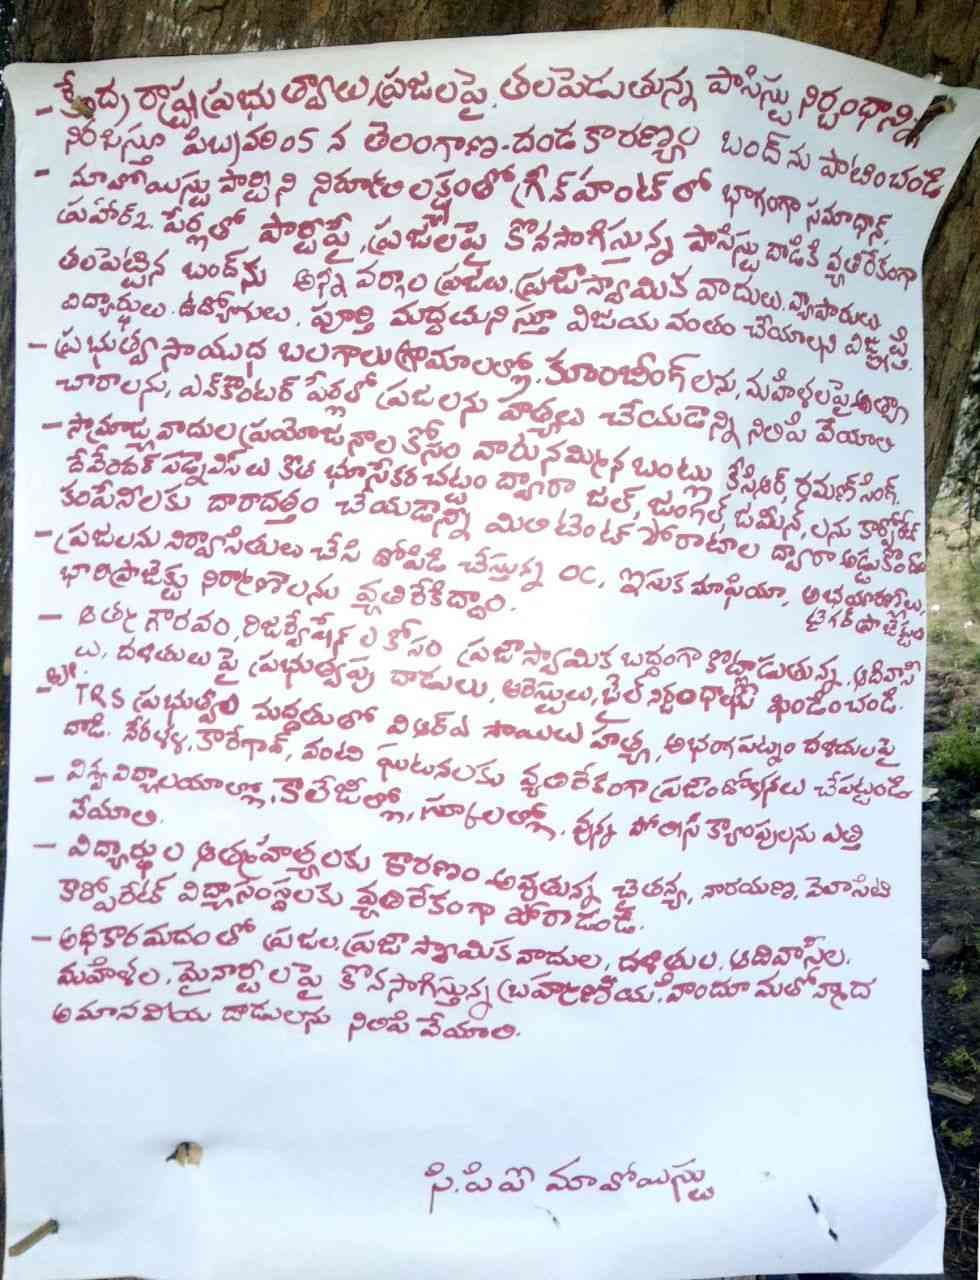 - కేంద్ర రాష్ట్ర ప్రభుత్వాలు ప్రజలపై, తలపెడుతున్న పాసిస్టు నిర్బంధాన్ని
నిరసిస్తూ పిబ్రవరి 05 న తెలంగాణ-దండకారణ్యం బంద్ ను పాటించండి
- మావోయిస్టు పార్టీని నిర్మూలి లక్ష్యంతో గ్రీన్ హంట్ లో భాగంగా సమాధాన్,
ప్రహార్ 2. పేర్లతో పార్టీపై, ప్రజలపై కొనసాగిస్తున్న పాసిస్టు దాడికి వ్యతిరేకంగా
తలపెట్టిన బంద్ ను అన్ని వర్గాల ప్రజలు, ప్రజాస్వామిక వాదులు, వ్యాపారులు
విద్యార్థులు. ఉద్యోగులు, పూర్తి మద్దతునిస్తూ విజయవంతం చేయాలని విజ్ఞప్తి.
- ప్రభుత్వ సాయుధ బలగాలు గ్రామాలల్లో, కూంబీంగ్ లను, మహిళలపై అత్యా
చారాలను, ఎన్ కౌంటర్ పేర్లతో ప్రజలను హత్యలు చేయడాన్ని నిలిపి వేయాలి
- సామ్రాజ్యవాదుల ప్రయోజనాల కోసం వారు నమ్మిన బంట్లు కేసిఆర్, రమణ్ సింగ్,
దేవేందర్ పడ్నవిస్ లు కొత్త భూసేకరణ చట్టం ద్వారా జల్, జంగల్, జమీన్, లను కార్పోరేట్
కంపేనీలకు దారాదత్తం చేయడాన్ని మిలిటెంట్ పోరాటాల ద్వారా అడ్డుకొందాం
- ప్రజలను నిర్వాసితులు చేసి దోపిడి చేస్తున్న OC, ఇసుక మాఫియా, అభయారణ్యాలు,
టైగర్ ప్రాజెక్టుల
భారిప్రాజెక్టు నిర్మాణాలను వ్యతిరేకిద్దాం.
- ఆత్మ గౌరవం, రిజర్వేషన్ ల కోసం ప్రజాస్వామిక బద్దంగా కొట్లాడుతున్న, ఆదివాసి
లు, దళితులు పై ప్రభుత్వపు దాడులు, అరెస్టులు, జైల్ నిర్బంధాలను ఖండించండి.
- TRS ప్రభుత్వం మద్దతుతో విఆర్ఎ సాయిలు హత్య, అభంగపట్నం దళితులపై
దాడి. నేరళ్ళ, కోరేగావ్, వంటి ఘటనలకు వ్యతిరేకంగా ప్రజాందోళనలు చేపట్టండి
- విశ్వ విద్యాలయాల్లో, కాలేజీల్లో, స్కూలల్లో, వున్న పోలీస్ క్యాంపులను ఎత్తి
వేయాలి.
- విద్యార్థుల ఆత్మహత్యలకు కారణం అవుతున్న చైతన్య, నారాయణ,
కార్పోరేటక్ విద్యాసంస్థలకు వ్యతిరేకంగా పోరాడండి.
- అధికార మదంతో ప్రజల, ప్రజాస్వామిక వాదుల, దళితుల, ఆదివాసీల,
మహిళల, మైనార్టీలపై కొనసాగిస్తున్న బ్రహ్మణీయ హిందూ మతోన్మాద
అమానవీయ దాడులను నిలిపి వేయాలి.
సి.పి ఐ మావోయిస్టు